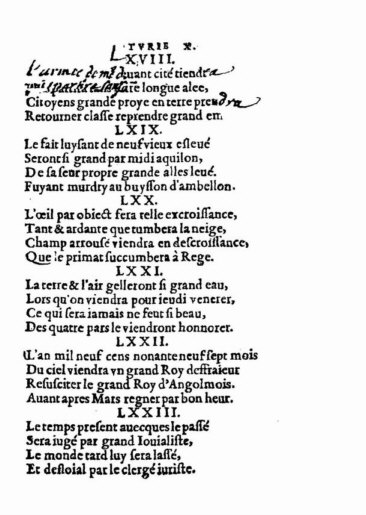 TVRIE X.
LXVIII.
L'armee de mer deuant cité tiendra
faire longue alee,
Citoyens grande proye en terre prendra
Retourner classe reprendre grand em.
LXIX.
Le fait luysant de neuf vieux esleué
Seront si grand par midi aquilon,
De sa seur propre grande alles leué.
Fuyant murdry au buysson d'ambellon.
LXX.
L'œil par obiect fera telle excroissance,
Tant & ardante que tumbera la neige,
Champ arrousé viendra en descroissance,
Que le primat succumbera à Rege.
LXXI.
La terre & l'air gelleront si grand eau,
Lors qu'on viendra pour ieudi venerer,
Ce qui sera iamais ne feut si beau,
Des quatre pars le viendront honnorer.
LXXII.
L'an mil neuf cens nonante neuf sept mois
Du ciel viendra vn grand Roy deffraieur
Resusciter le grand Roy d'Angolmois.
Auant apres Mars regner par bon heur.
LXXIII.
Le temps present auecques le passé
Sera iugé par grand Iouialiste,
Le monde tard luy sera lassé,
Et desloial par le clergé iuriste.